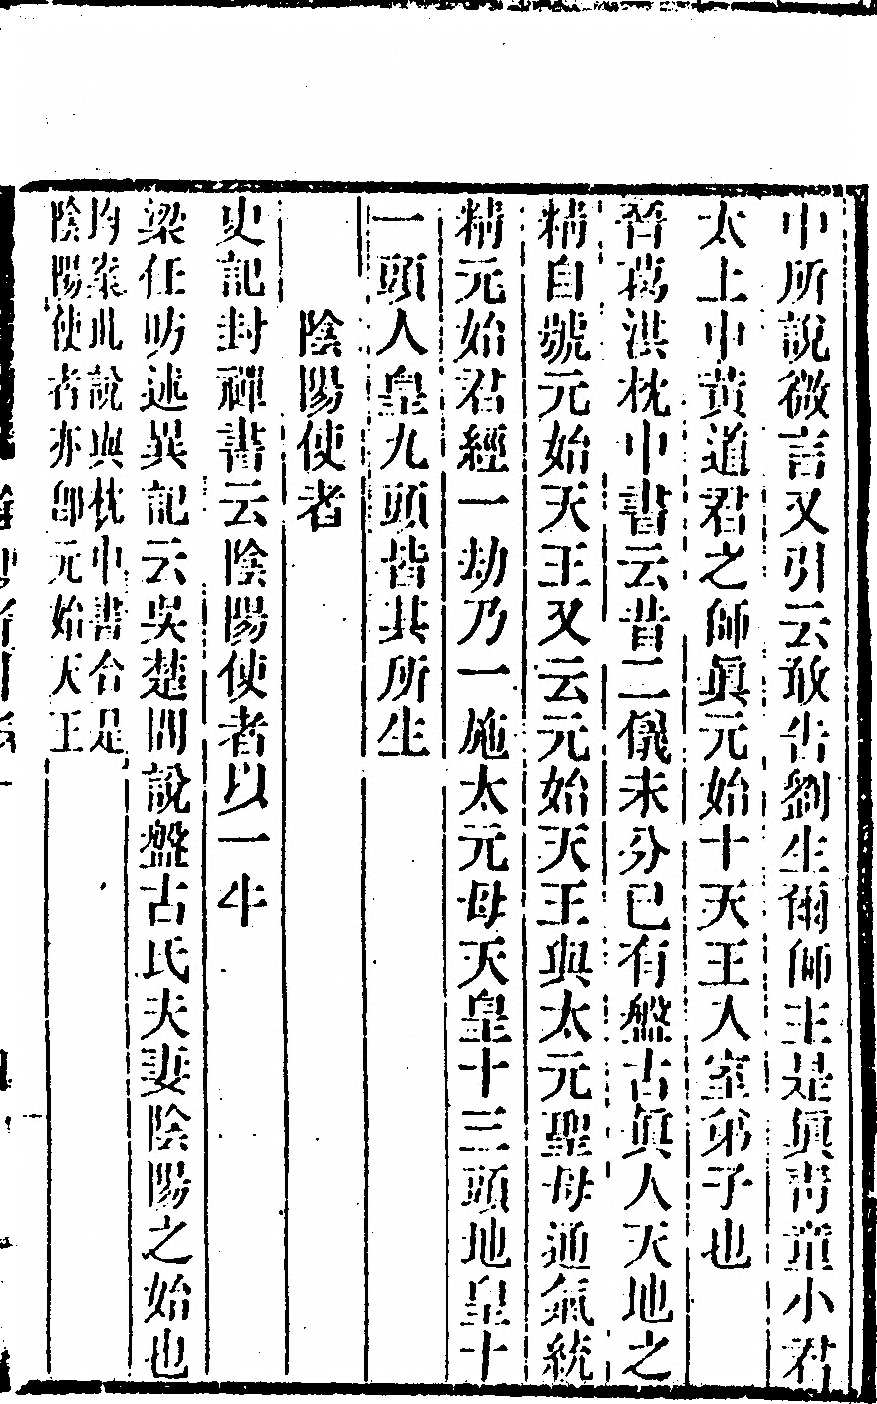 中所說微言又引云敢告劉生爾師主是眞靑童小君
太上中黃道君之師眞元始十天王入室弟子也
晉葛洪枕中書云昔二儀未分已有盤古眞人天地之
精自號元始天王又云元始天王與太元聖母通氣統
精元始君經一劫乃一施太元母天皇十三頭地皇十
一頭人皇九頭皆其所生
陰陽使者
史記封禪書云陰陽使者以一牛
梁任昉述異記云吳楚間說盤古氏夫妻陰陽之始也
均案此說與枕中書合是
陰陽使者亦卽元始天王